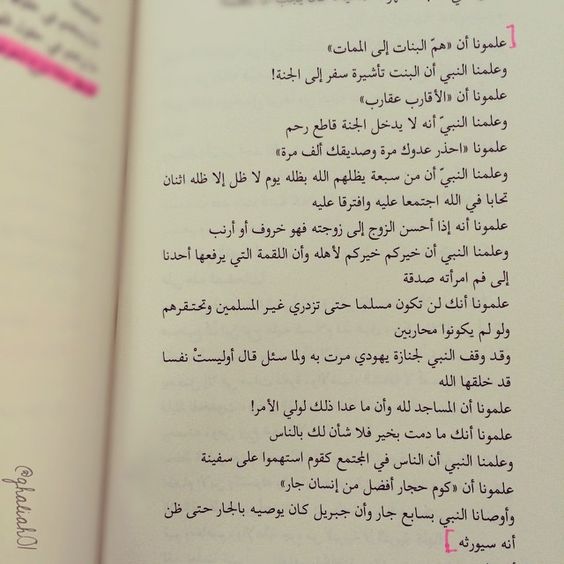 علمونا أن «همّ البنات إلى الممات»
وعلمنا النبي أن البنت تأشيرة سفر إلى الجنة!
علمونا أن «الأقارب عقارب»
وعلمنا النبيّ أنه لا يدخل الجنة قاطع رحم
علمونا «احذر عدوك مرة وصديقك ألف مرة»
وعلمنا النبيّ أن من سبعة يظلهم الله بظله يوم لا ظل إلا ظله اثنان
تحابا في الله اجتمعا عليه وافترقا عليه
علمونا أنه إذا أحسن الزوج إلى زوجته فهو خروف أو أرنب
وعلمنا النبي أن خيركم خيركم لأهله وأن اللقمة التي يرفعها أحدنا
إلى فم امرأته صدقة
علمونا أنك لن تكون مسلما حتى تزدري غير المسلمين وتحتقرهم
ولو لم يكونوا محاربين
وقد وقف النبي لجنازة يهودي مرت به ولما سئل قال أوليستْ نفسا
قد خلقها الله
علمونا أن المساجد لله وأن ما عدا ذلك لولي الأمر!
علمونا أنك ما دمت بخير فلا شأن لك بالناس
وعلمنا النبي أن الناس في المجتمع كقوم استهموا على سفينة
علمونا أن «كوم حجار أفضل من إنسان جار»
وأوصانا النبي بسابع جار وأن جبريل كان يوصيه بالجار حتى ظن
أنه سيورثه
@ghaliah01